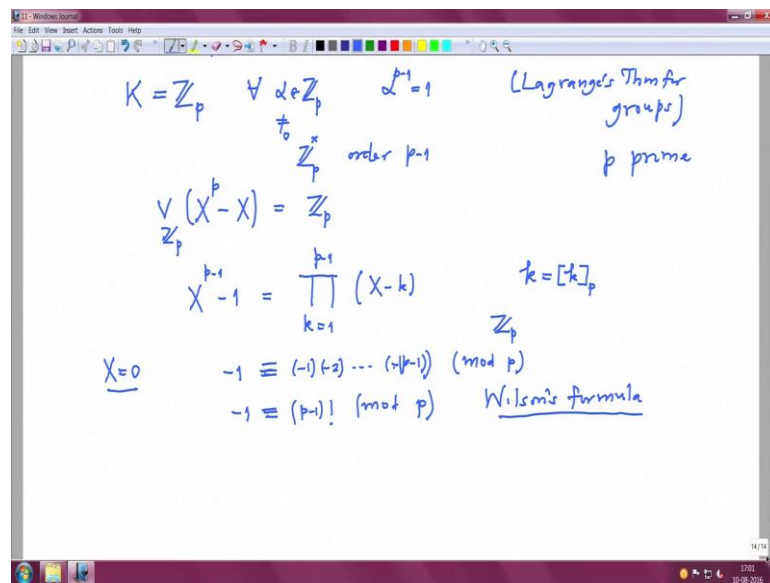 11 - Windows Journal
File Edit View Insert Actions Tools Help
K = ℤ_p ∀ α ∈ ℤ_p α^{p-1} = 1 (Lagrange's Thm for
≠0 groups)
ℤ_p^× order p-1 p prime
V_{ℤ_p} (X^p - X) = ℤ_p
X^{p-1} - 1 = ∏_{k=1}^{p-1} (X-k) k = [k]_p
ℤ_p
X=0 -1 ≡ (-1)(-2) ... (-(p-1)) (mod p)
-1 ≡ (p-1)! (mod p) Wilson's formula
14/14
17:01
10-08-2016